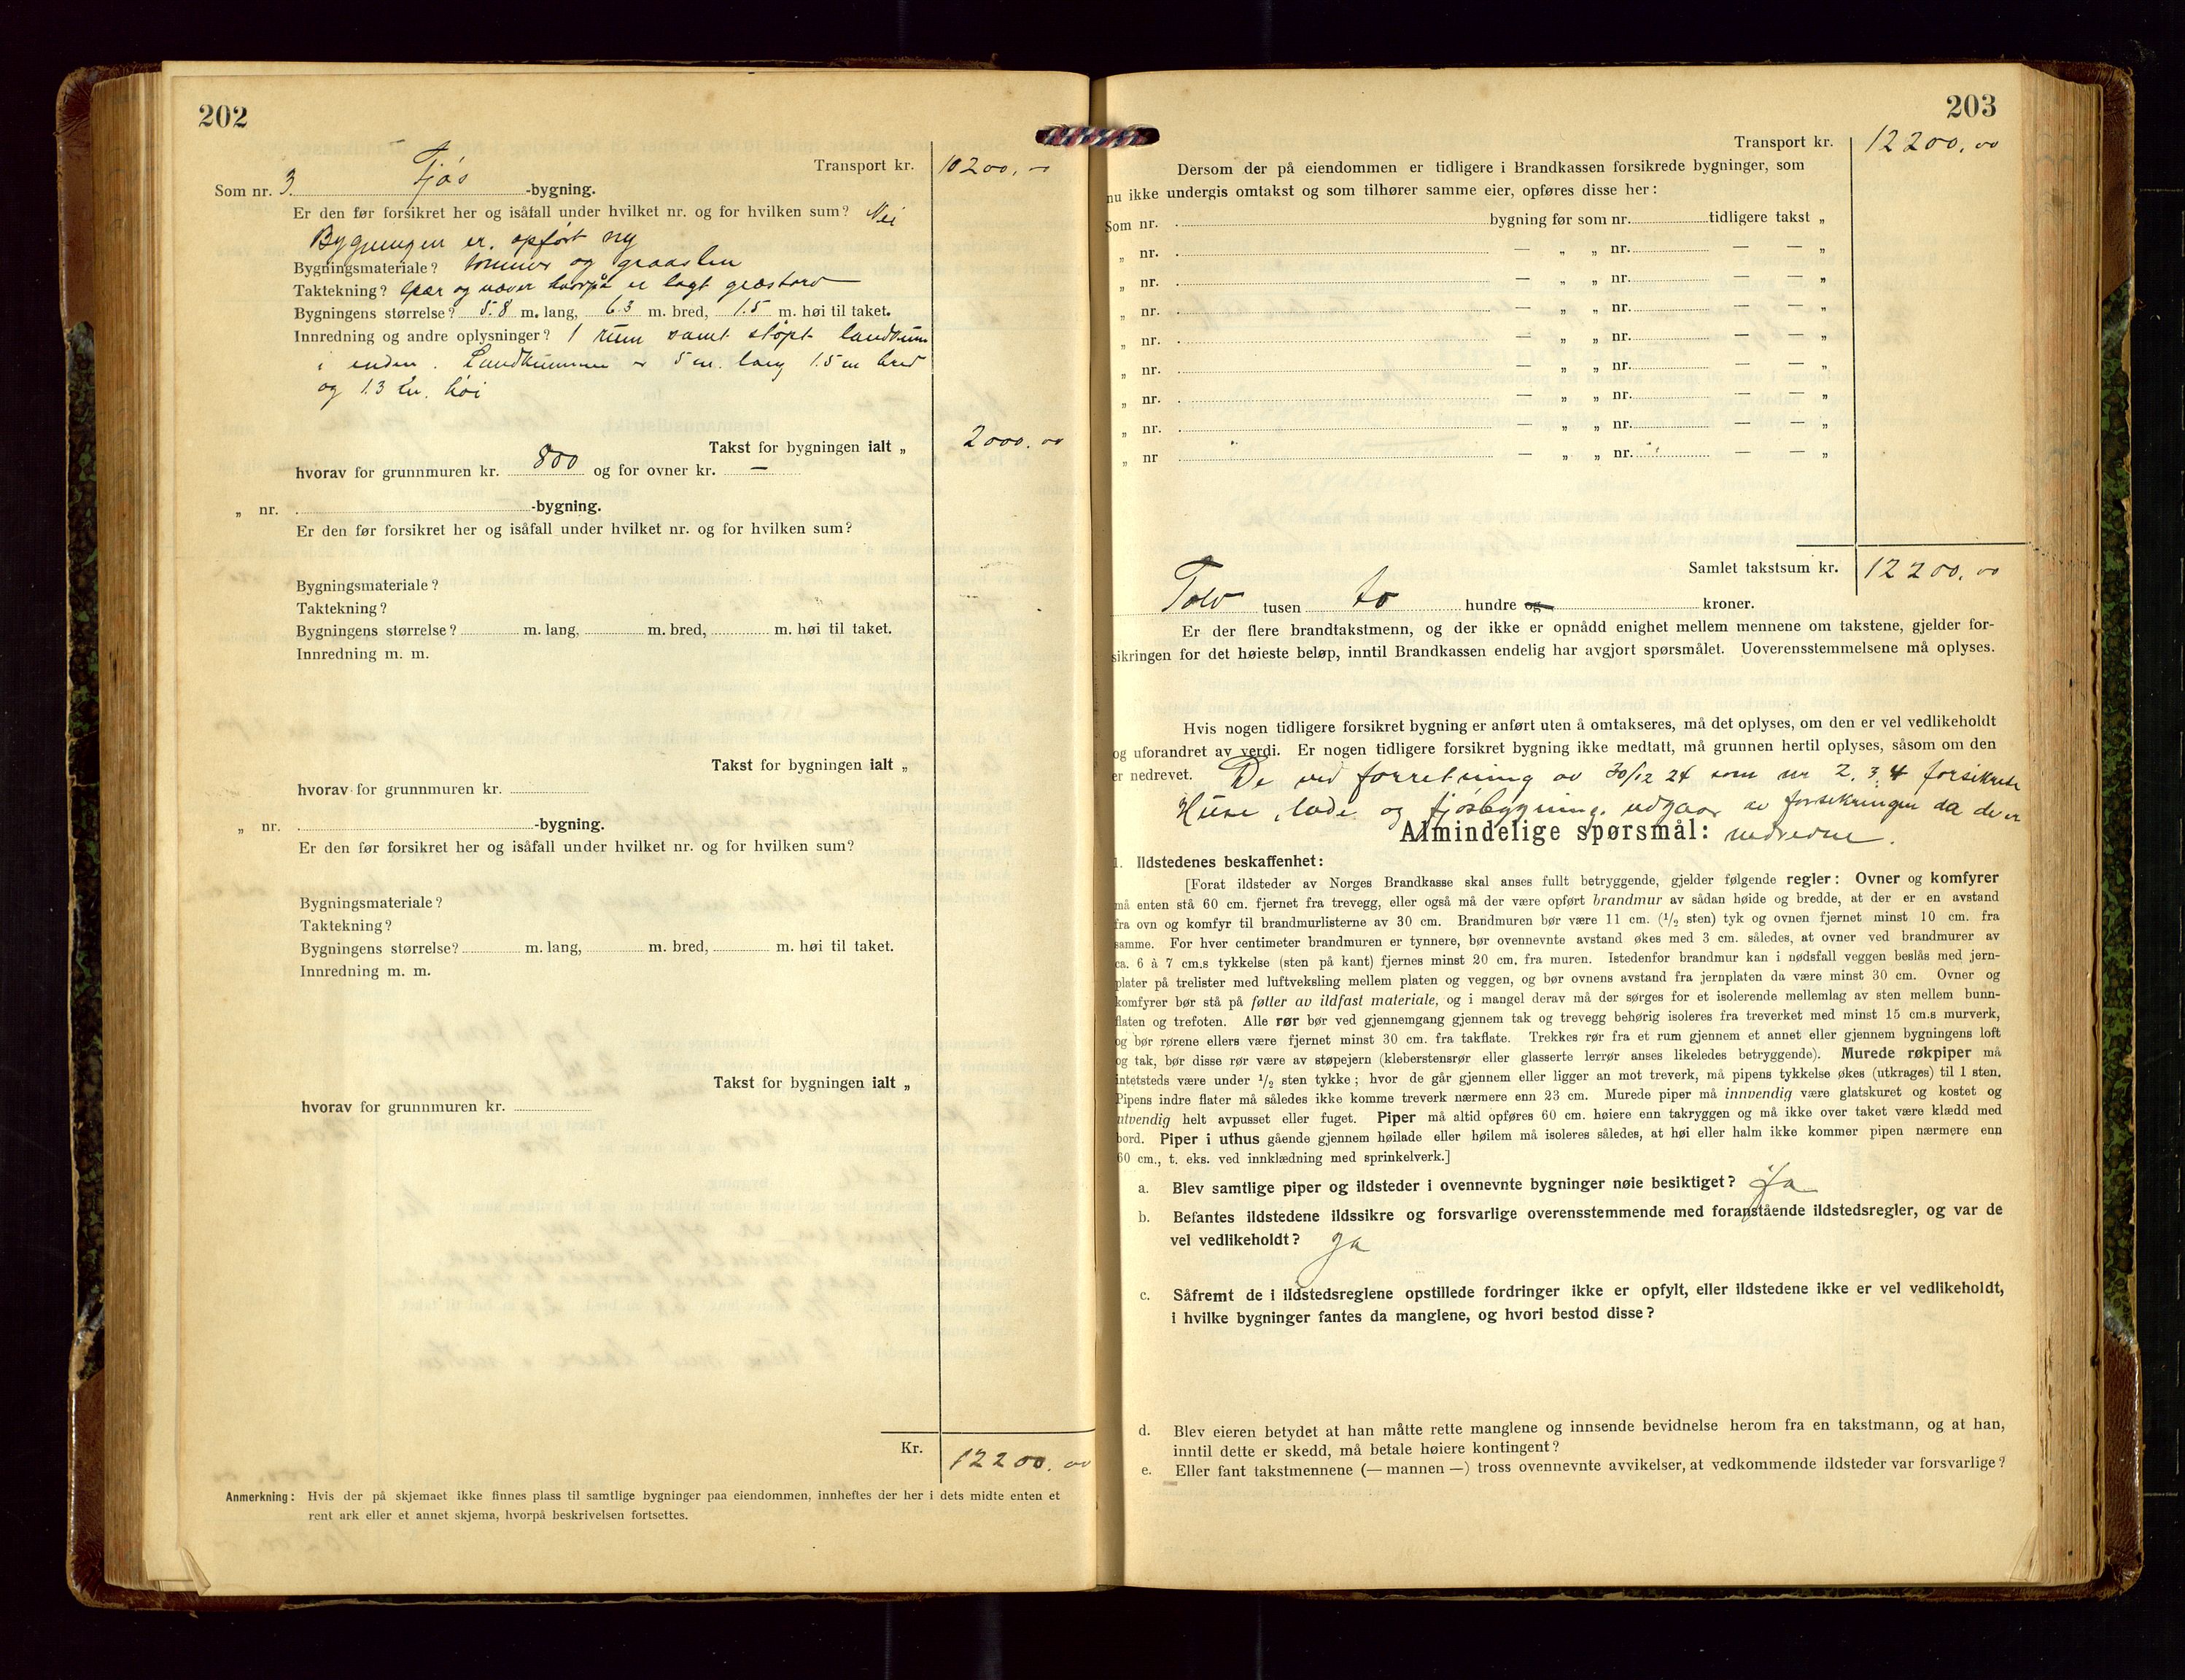 202
Transport kr. 10200,-
Som nr. 3. Fjøs -bygning.
Er den før forsikret her og isåfall under hvilket nr. og for hvilken sum? Nei
Bygningen er opført ny
Bygningsmateriale? tømmer og graasten
Taktekning? spær og næver hvorpå er lagt græstorv
Bygningens størrelse? 5.8 m. lang, 6.3 m. bred, 1.5 m. høi til taket.
Innredning og andre oplysninger? 1 rum samt støpt landkum
i enden. Landkummen er 5 m. lang 1.5 m bred
og 1.3 m. høi
Takst for bygningen ialt „ 2000.00
hvorav for grunnmuren kr. 800 og for ovner kr. —
„ nr. -bygning.
Er den før forsikret her og isåfall under hvilket nr. og for hvilken sum?
Bygningsmateriale?
Taktekning?
Bygningens størrelse? m. lang, m. bred, m. høi til taket.
Innredning m. m.
Takst for bygningen ialt „
hvorav for grunnmuren kr.
„ nr. -bygning.
Er den før forsikret her og isåfall under hvilket nr. og for hvilken sum?
Bygningsmateriale?
Taktekning?
Bygningens størrelse? m. lang, m. bred, m. høi til taket.
Innredning m. m.
Takst for bygningen ialt „
hvorav for grunnmuren kr.
Kr. 12200.00
Anmerkning: Hvis der på skjemaet ikke finnes plass til samtlige bygninger paa eiendommen, innheftes der her i dets midte enten et
rent ark eller et annet skjema, hvorpå beskrivelsen fortsettes.
203
Transport kr. 12200.00
Dersom der på eiendommen er tidligere i Brandkassen forsikrede bygninger, som
nu ikke undergis omtakst og som tilhører samme eier, opføres disse her:
Som nr. bygning før som nr. tidligere takst „
„ nr. — „ „ nr. — — „
„ nr. — „ „ nr. — — „
„ nr. — „ „ nr. — — „
„ nr. — „ „ nr. — — „
„ nr. — „ „ nr. — — „
„ nr. — „ „ nr. — — „
„ nr. — „ „ nr. — — „
„ nr — „ „ nr. — — „
Samlet takstsum kr. 12200.00
Tolv tusen to hundre og kroner.
Er der flere brandtakstmenn, og der ikke er opnådd enighet mellem mennene om takstene, gjelder for-
sikringen for det høieste beløp, inntil Brandkassen endelig har avgjort spørsmålet. Uoverensstemmelsene må oplyses.
Hvis nogen tidligere forsikret bygning er anført uten å omtakseres, må det oplyses, om den er vel vedlikeholdt
og uforandret av verdi. Er nogen tidligere forsikret bygning ikke medtatt, må grunnen hertil oplyses, såsom om den
er nedrevet. De ved forretning av 30/12 24 som nr 2, 3, 4 forsikrede
Huse, lade og fjøsbygning, udgaar av forsikringen da de er
Almindelige spørsmål: nedrevne.
1. Ildstedenes beskaffenhet:
[Forat ildsteder av Norges Brandkasse skal anses fullt betryggende, gjelder følgende regler: Ovner og komfyrer
må enten stå 60 cm. fjernet fra trevegg, eller også må der være opført brandmur av sådan høide og bredde, at der er en avstand
fra ovn og komfyr til brandmurlisterne av 30 cm. Brandmuren bør være 11 cm. (1/2 sten) tyk og ovnen fjernet minst 10 cm. fra
samme. For hver centimeter brandmuren er tynnere, bør ovennevnte avstand økes med 3 cm. således, at ovner ved brandmurer av
ca. 6 à 7 cm.s tykkelse (sten på kant) fjernes minst 20 cm. fra muren. Istedenfor brandmur kan i nødsfall veggen beslås med jern-
plater på trelister med luftveksling mellem platen og veggen, og bør ovnens avstand fra jernplaten da være minst 30 cm. Ovner og
komfyrer bør stå på føtter av ildfast materiale, og i mangel derav må der sørges for et isolerende mellemlag av sten mellem bunn-
flaten og trefoten. Alle rør bør ved gjennemgang gjennem tak og trevegg behørig isoleres fra treverket med minst 15 cm.s murverk,
og bør rørene ellers være fjernet minst 30 cm. fra takflate. Trekkes rør fra et rum gjennem et annet eller gjennem bygningens loft
og tak, bør disse rør være av støpejern (kleberstensrør eller glasserte lerrør anses likeledes betryggende). Murede røkpiper må
intetsteds være under 1/2 sten tykke; hvor de går gjennem eller ligger an mot treverk, må pipens tykkelse økes (utkrages) til 1 sten.
Pipens indre flater må således ikke komme treverk nærmere enn 23 cm. Murede piper må innvendig være glatskuret og kostet og
utvendig helt avpusset eller fuget. Piper må altid opføres 60 cm. høiere enn takryggen og må ikke over taket være klædd med
bord. Piper i uthus gående gjennem høilade eller høilem må isoleres således, at høi eller halm ikke kommer pipen nærmere enn
60 cm., t. eks. ved innklædning med sprinkelverk.]
a. Blev samtlige piper og ildsteder i ovennevnte bygninger nøie besiktiget? Ja
b. Befantes ildstedene ildssikre og forsvarlige overensstemmende med foranstående ildstedsregler, og var de
vel vedlikeholdt? Ja
c. Såfremt de i ildstedsreglene opstillede fordringer ikke er opfylt, eller ildstedene ikke er vel vedlikeholdt,
i hvilke bygninger fantes da manglene, og hvori bestod disse?
d. Blev eieren betydet at han måtte rette manglene og innsende bevidnelse herom fra en takstmann, og at han,
inntil dette er skedd, må betale høiere kontingent?
e. Eller fant takstmennene (— mannen —) tross ovennevnte avvikelser, at vedkommende ildsteder var forsvarlige?